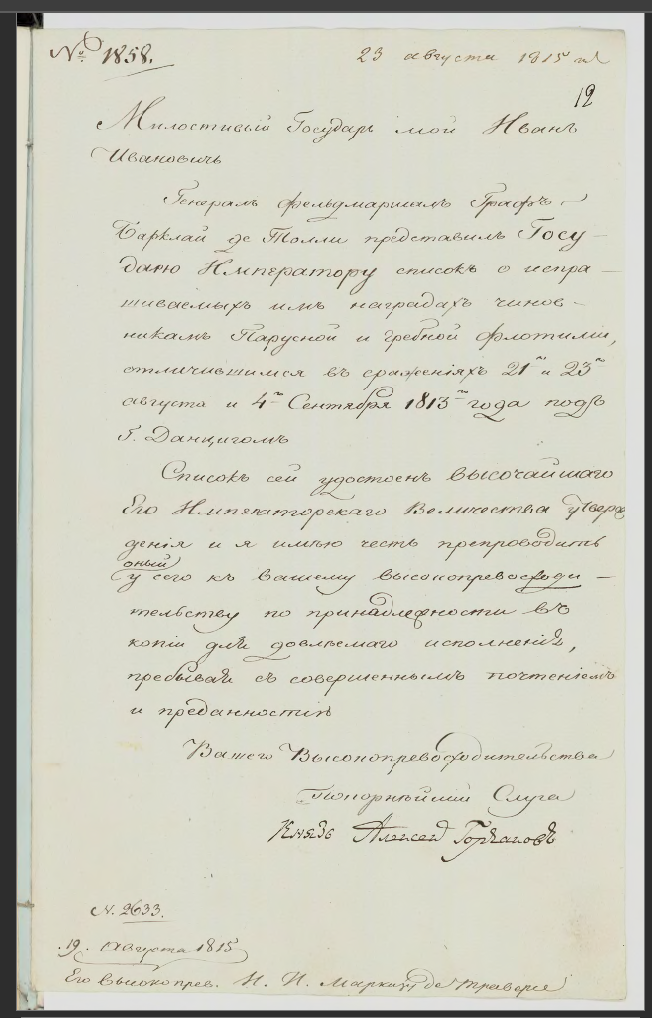 № 1858.
23 августа 1815 г.
12
Милостивый Государь мой Иванъ
Ивановичь
Генералъ фельдмаршалъ Графъ
Барклай де Толли представилъ Госу-
дарю Императору списокъ о испра-
шиваемыхъ имъ наградахъ чинов-
никамъ Парусной и гребной флотилии,
отличившимся въ сраженіяхъ 21го и 23го
августа и 4го Сентября 1813го года подъ
г. Данцигомъ
Списокъ сей удостоенъ высочайшаго
Его Императорскаго Величества утверж
денія и я имѣю честь препроводить
оный
у сего къ вашему высокопревосходи-
тельству по принадлежности въ
копіи для должнаго исполненія,
пребывая съ совершеннымъ почтеніемъ
и преданностію
Вашего Высокопревосходительства
Покорнѣйшій Слуга
Князь Алексей Горчаковъ
N. 2633.
19. августа 1815
Его высокопрев. И. И. Маркизу де Траверсе